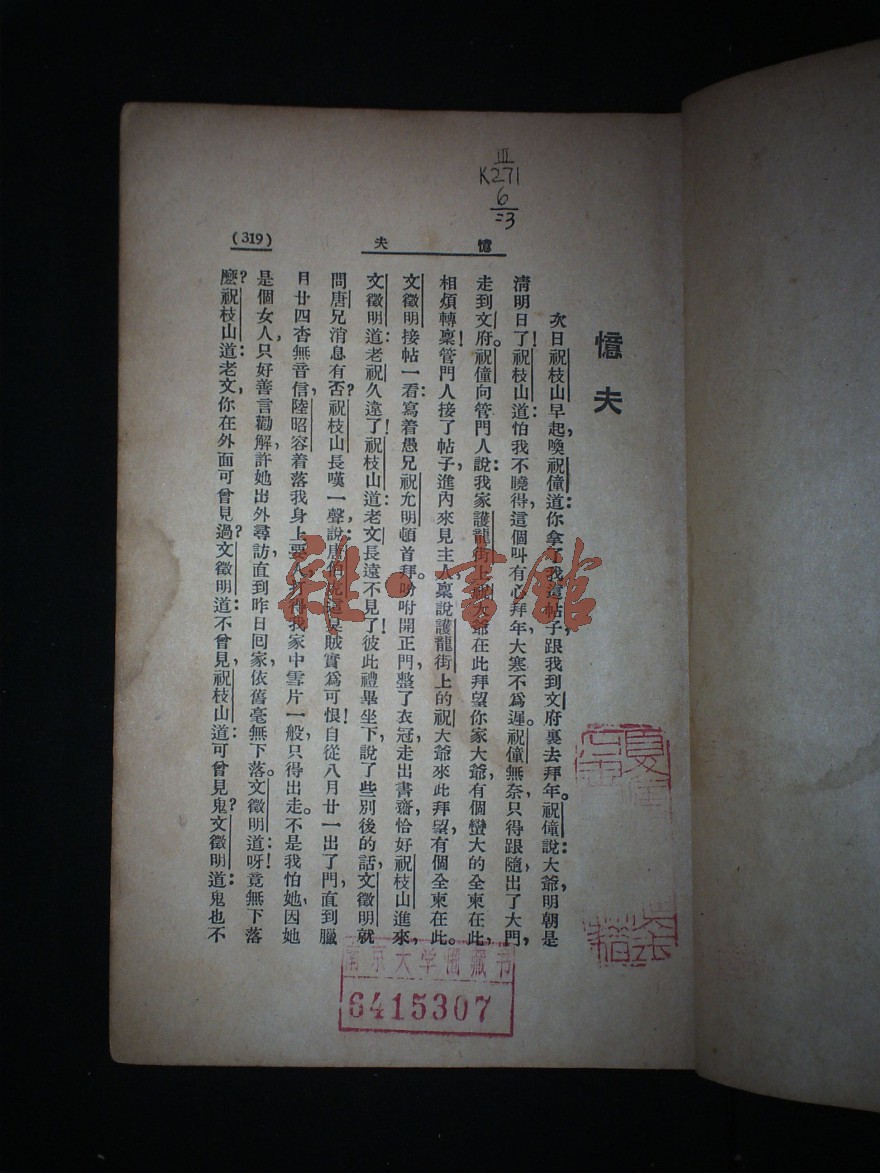 III
K271
6
=3
憶夫
(319)
憶夫
次日祝枝山早起,喚祝僮道:你拿了我這帖子,跟我到文府裏去拜年。祝僮說:大爺,明朝是
清明日了!祝枝山道:怕我不曉得,這個叫有心拜年,大寒不爲遲。祝僮無奈,只得跟隨出了大門,
走到文府。祝僮向管門人說:我家護龍街上祝大爺在此拜望你家大爺,有個蠻大的全柬在此,
相煩轉稟!管門人接了帖子,進內來見主人,稟說護龍街上的祝大爺來此拜望,有個全柬在此。
文徵明接帖一看,寫着:愚兄祝允明頓首拜。吩咐開正門,整了衣冠,走出書齋,恰好祝枝山進來,
文徵明道:老祝久遠了!祝枝山道:老文長遠不見了!彼此禮畢坐下,說了些別後的話,文徵明就
問唐兄消息有否?祝枝山長嘆一聲,說:唐伯虎這臭賊實爲可恨!自從八月廿一出了門,直到臘
月廿四杳無音信,陸昭容着落我身上要人,打得我家中雪片一般,只得出走。不是我怕她,因她
是個女人,只好善言勸解,許她出外尋訪,直到昨日回家,依舊毫無下落。文徵明道:呀!竟無下落
麽?祝枝山道:老文,你在外面可曾見過?文徵明道:不曾見,祝枝山道:可曾見鬼?文徵明道:鬼也不
雅·書館
南京大学图藏书
6415307